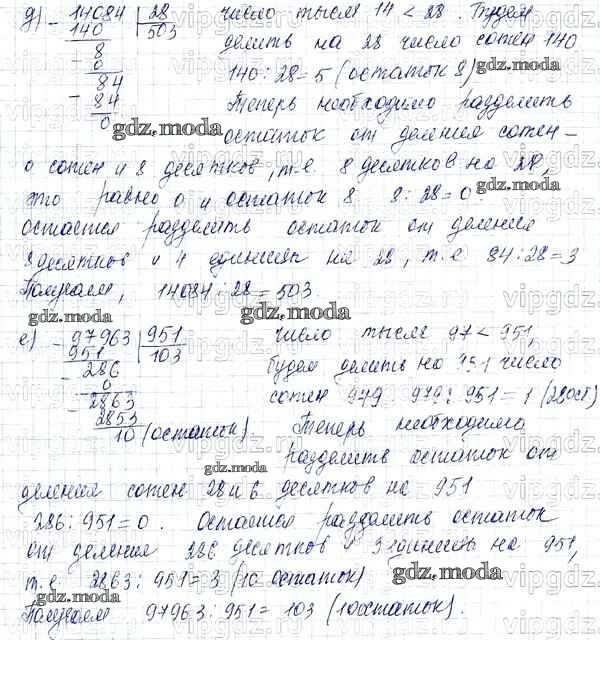 д) 14084 | 28 число тысяч 14 < 28. Будем
140 503 делить на 28 число сотен 140
8 140 : 28 = 5 (остаток 8)
0 gdz.moda
84 Теперь необходимо разделить
84 остаток от деления сотен -
0 gdz.moda
0 сотен и 8 десятков, т.е. 8 десятков на 28,
это равно 0 и остаток 8 8 : 28 = 0.
gdz.moda
остается разделить остаток от деления
8 десятков и 4 единицы на 28, т.е 84 : 28 = 3
Получаем, 14084 : 28 = 503
gdz.moda gdz.moda
е) 97963 | 951 число тысяч 97 < 951,
951 103 будем делить на 951 число
286 сотен 979 979 : 951 = 1 (28 ост)
0 gdz.moda
2863
2853
10 (остаток). Теперь необходимо
gdz.moda разделить остаток от
деления сотен 28 и 6 десятков на 951
286 : 951 = 0. Остается разделить остаток
от деления 286 десятков и 3 единиц на 951,
т.е 2863 : 951 = 3 (10 остаток)
gdz.moda gdz.moda
Получаем 97963 : 951 = 103 (10 остаток).
vipgdz